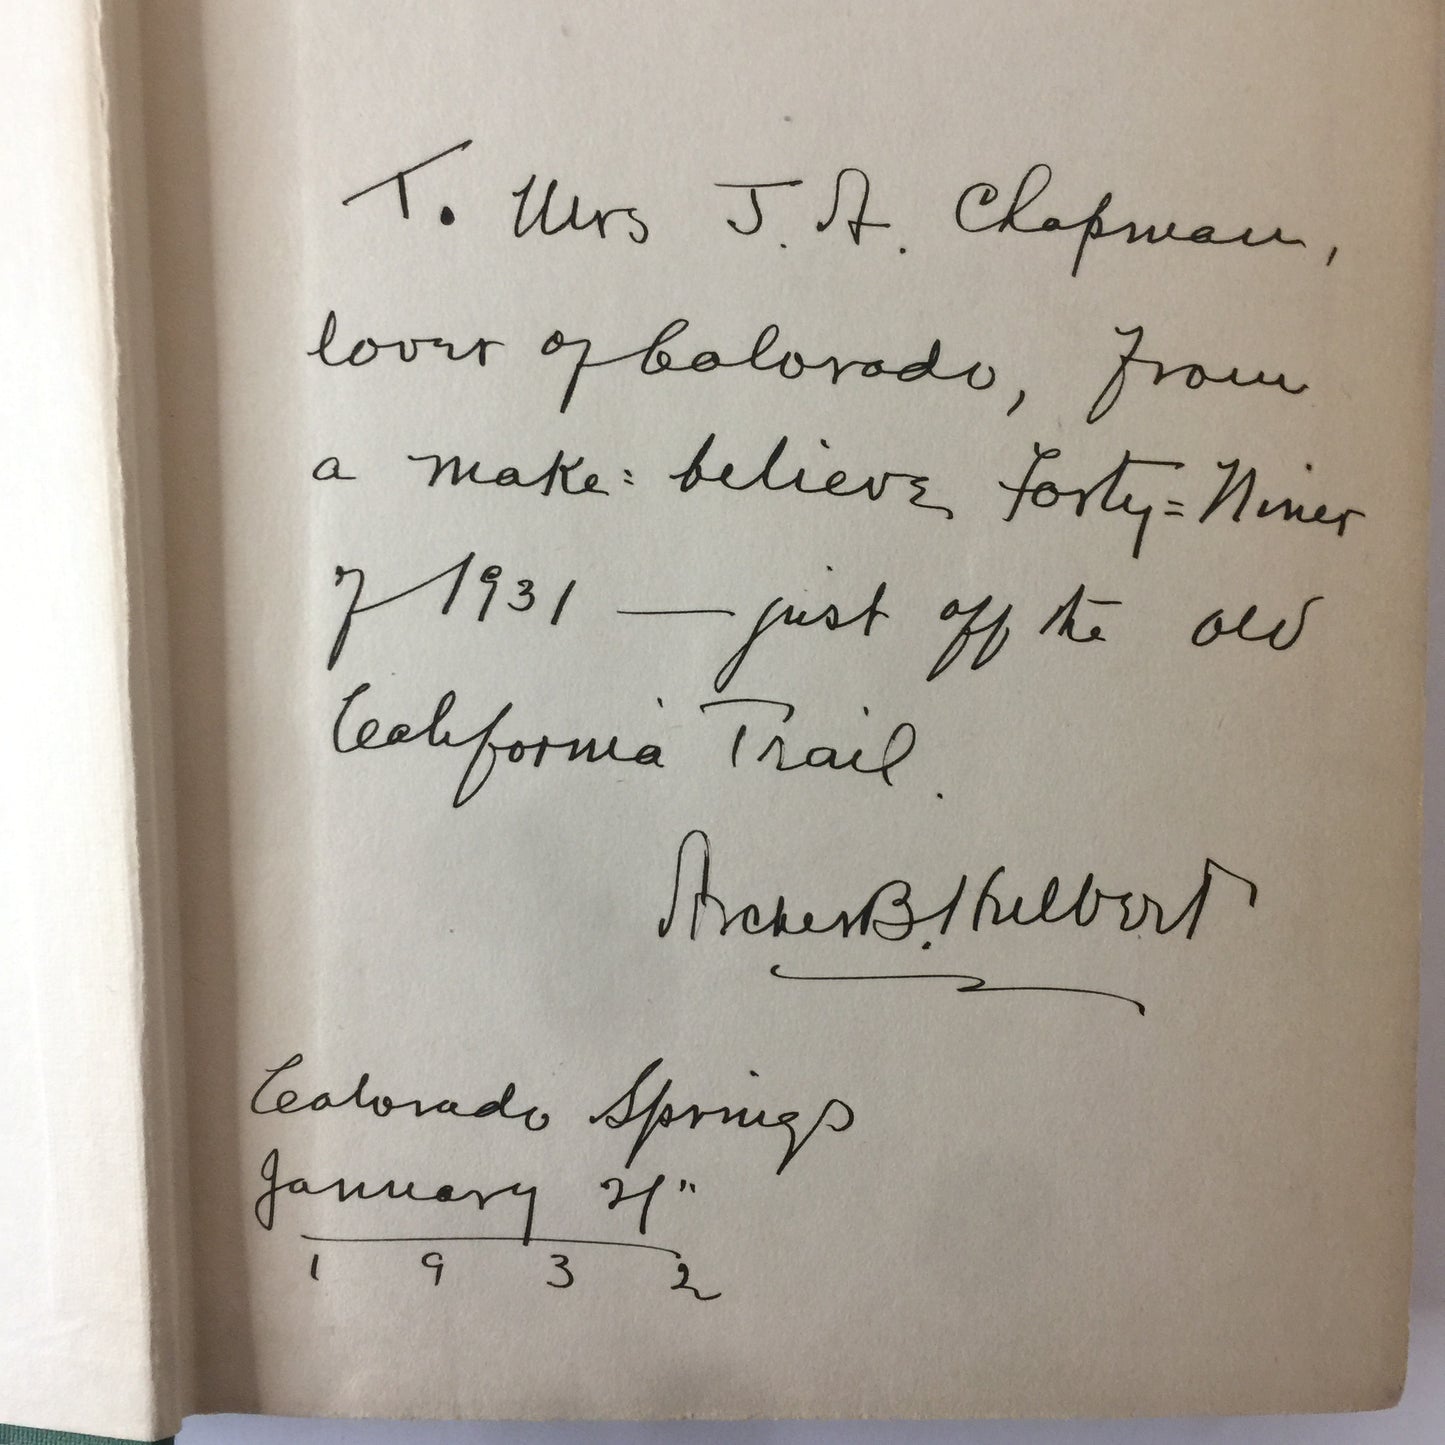 To Mrs J. A. Chapman,
lover of Colorado, from
a make=believe Forty=Niner
of 1931 — just off the old
California Trail.
Archer B. Hulbert
Colorado Springs
January 21"
1932